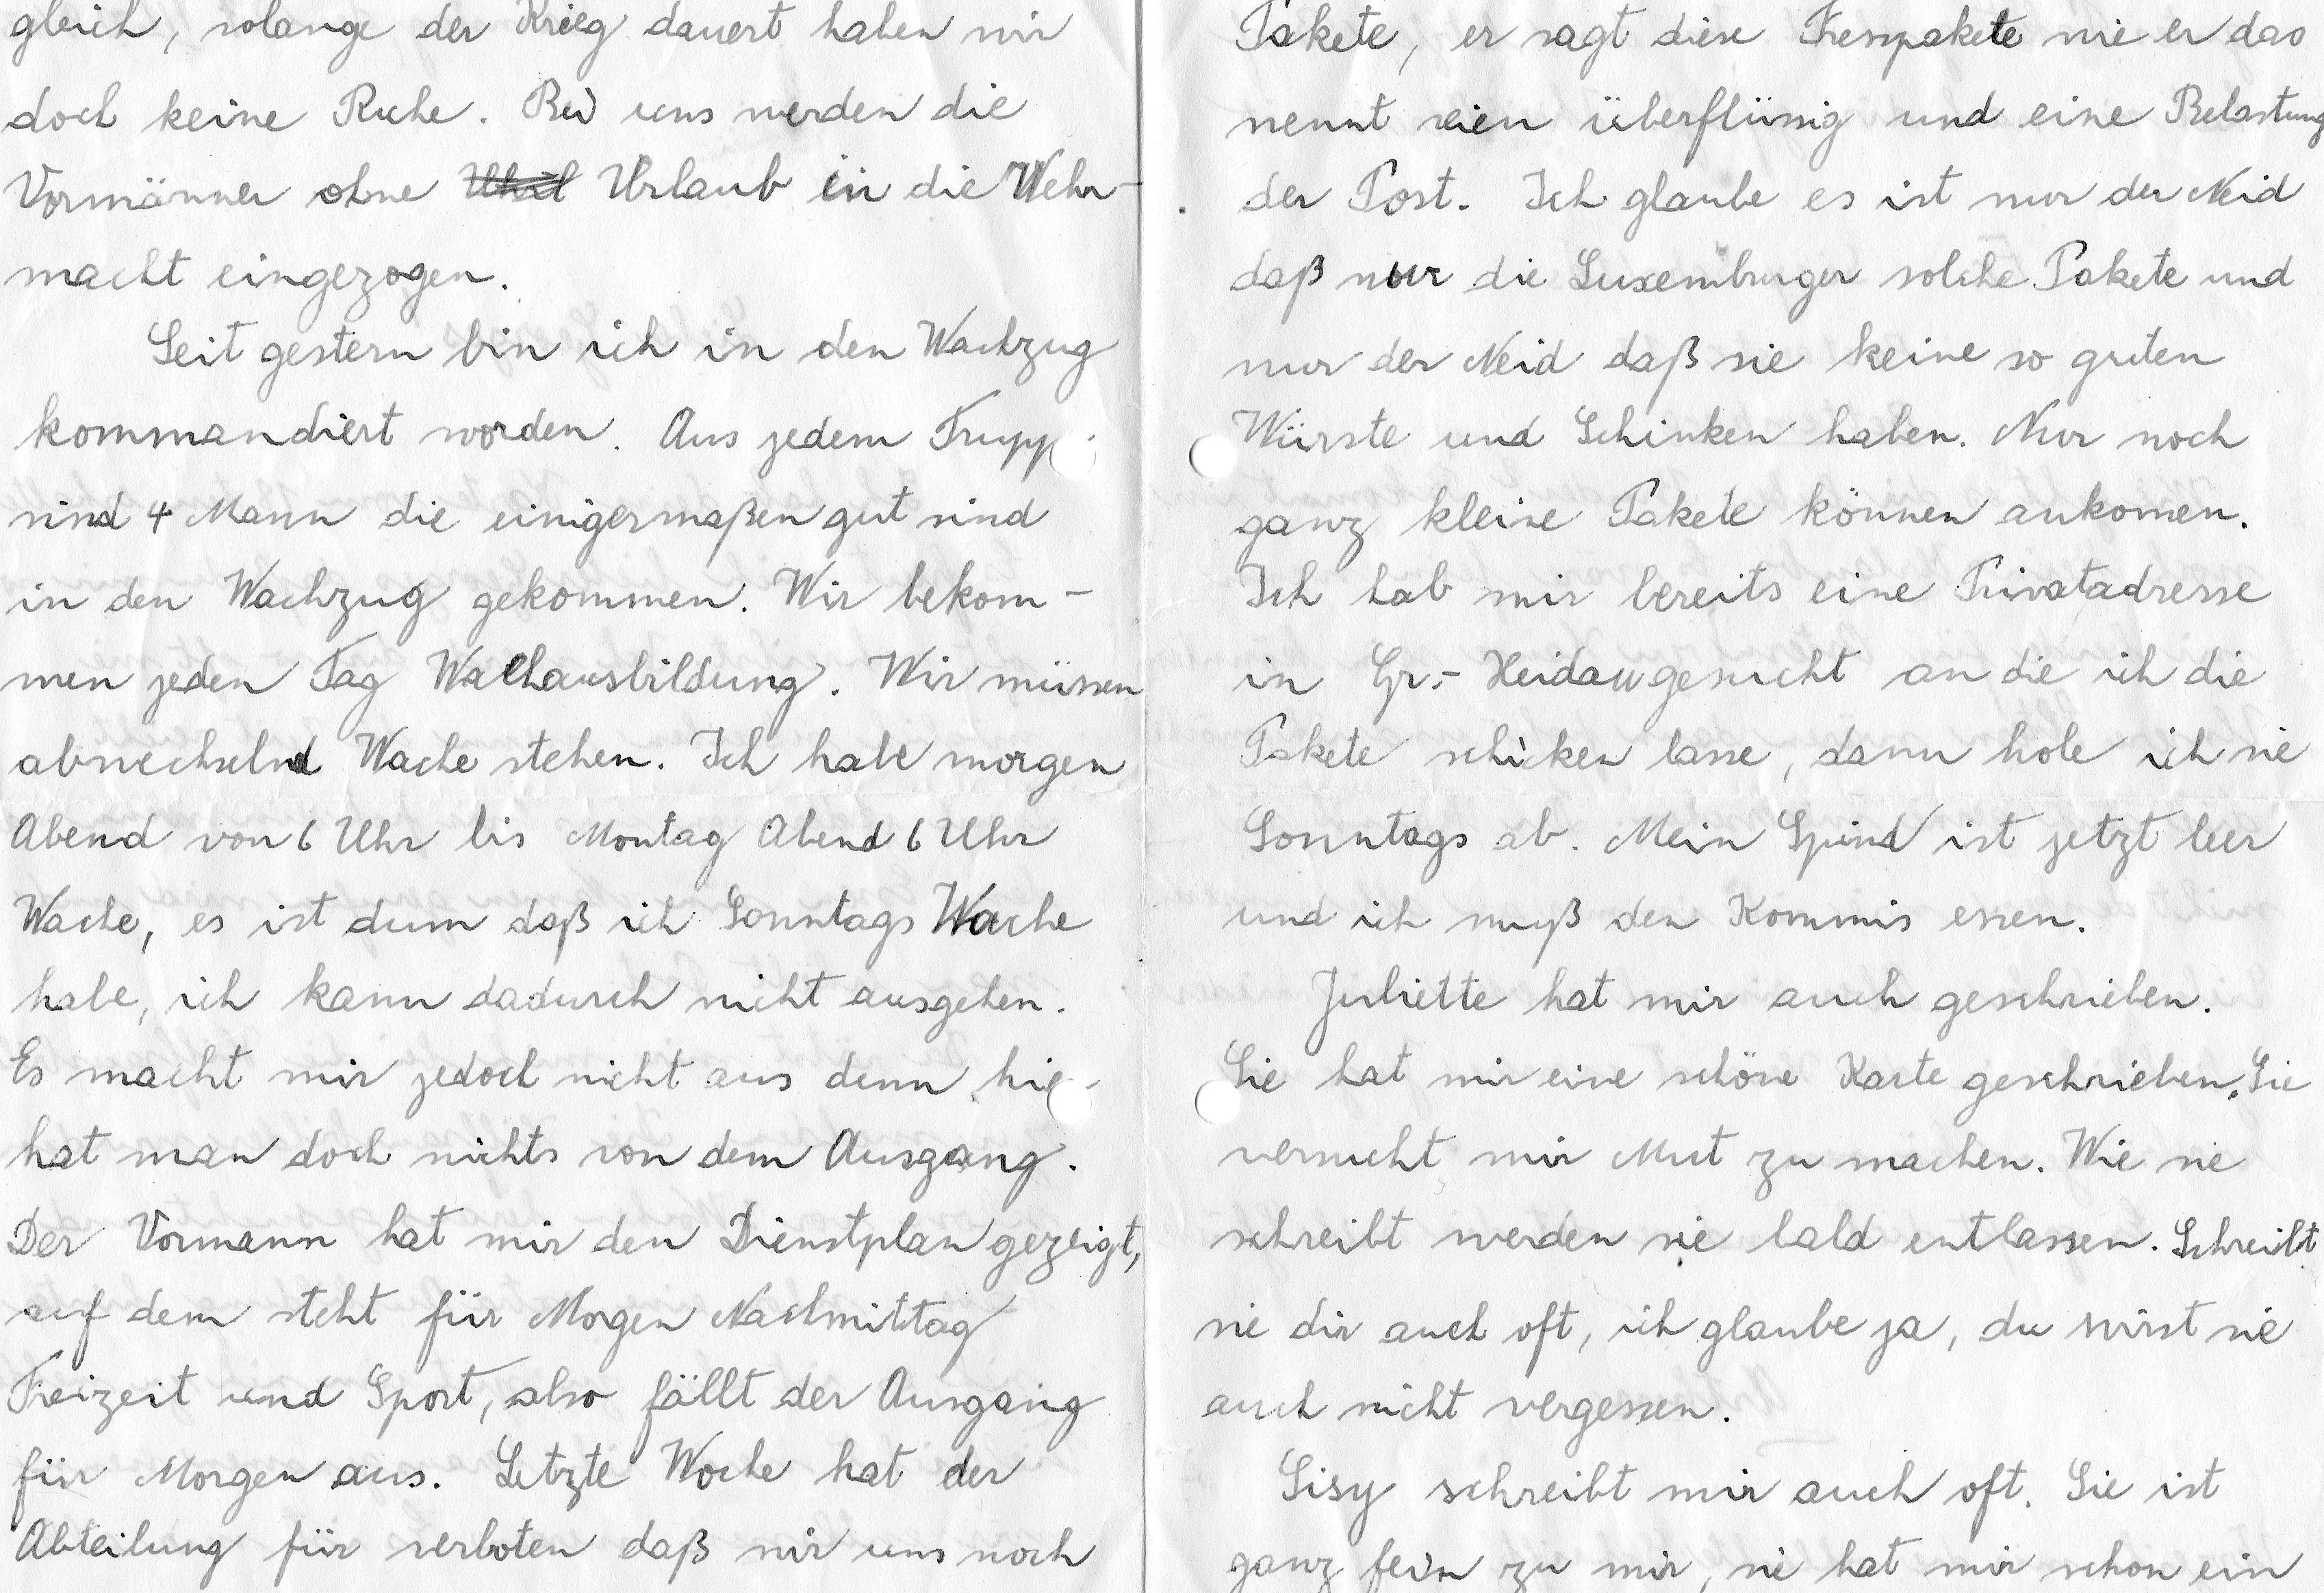 gleich, solange der Krieg dauert haben wir
doch keine Ruhe. Bei uns werden die
Vormänner ohne Urlaub in die Wehr-
macht eingezogen.
Seit gestern bin ich in den Wachzug
kommandiert worden. Aus jedem Trupp
sind 4 Mann die einigermaßen gut sind
in den Wachzug gekommen. Wir bekom-
men jeden Tag Wachausbildung. Wir müssen
abwechselnd Wache stehen. Ich habe morgen
Abend von 6 Uhr bis Montag Abend 6 Uhr
Wache, es ist dum daß ich Sonntags Wache
habe, ich kann dadurch nicht ausgehen.
Es macht mir jedoch nicht aus denn hie
hat man doch nichts von dem Ausgang.
Der Vormann hat mir den Dienstplan gezeigt,
auf dem steht für Morgen Nachmittag
Freizeit und Sport, also fällt der Ausgang
für Morgen aus. Letzte Woche hat der
Abteilung für verboten daß wir uns noch
Pakete, er sagt diese Fresspakete wie er das
nennt seien überflüssig und eine Belastung
der Post. Ich glaube es ist nur der Neid
daß nur die Luxemburger solche Pakete und
nur der Neid daß sie keine so guten
Würste und Schinken haben. Nur noch
ganz kleine Pakete können ankomen.
Ich hab mir bereits eine Privatadresse
in Gr.- Heidau gesucht an die ich die
Pakete schicken lasse, dann hole ich sie
Sonntags ab. Mein Spind ist jetzt leer
und ich muß den Kommis essen.
Juliette hat mir auch geschrieben.
Sie hat mir eine schöne Karte geschrieben. Sie
versucht mir Mut zu machen. Wie sie
schreibt werden sie bald entlassen. Schreibt
sie dir auch oft, ich glaube ja, du wirst sie
auch nicht vergessen.
Sisy schreibt mir auch oft. Sie ist
ganz fein zu mir, sie hat mir schon ein